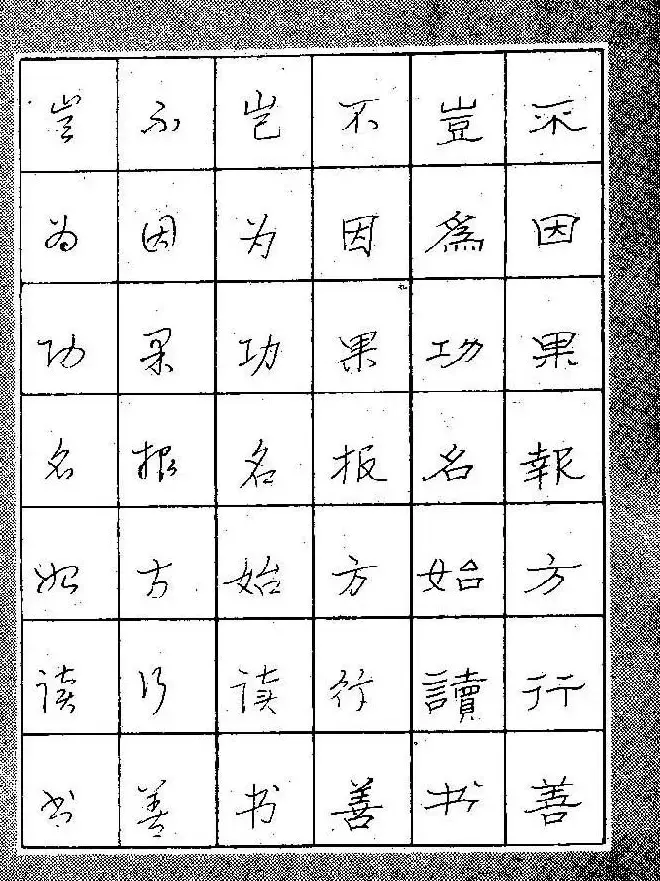 不因果報方行善
豈爲功名始讀书
不因果报方行善
岂为功名始读书
不因果报方行善
岂为功名始读书